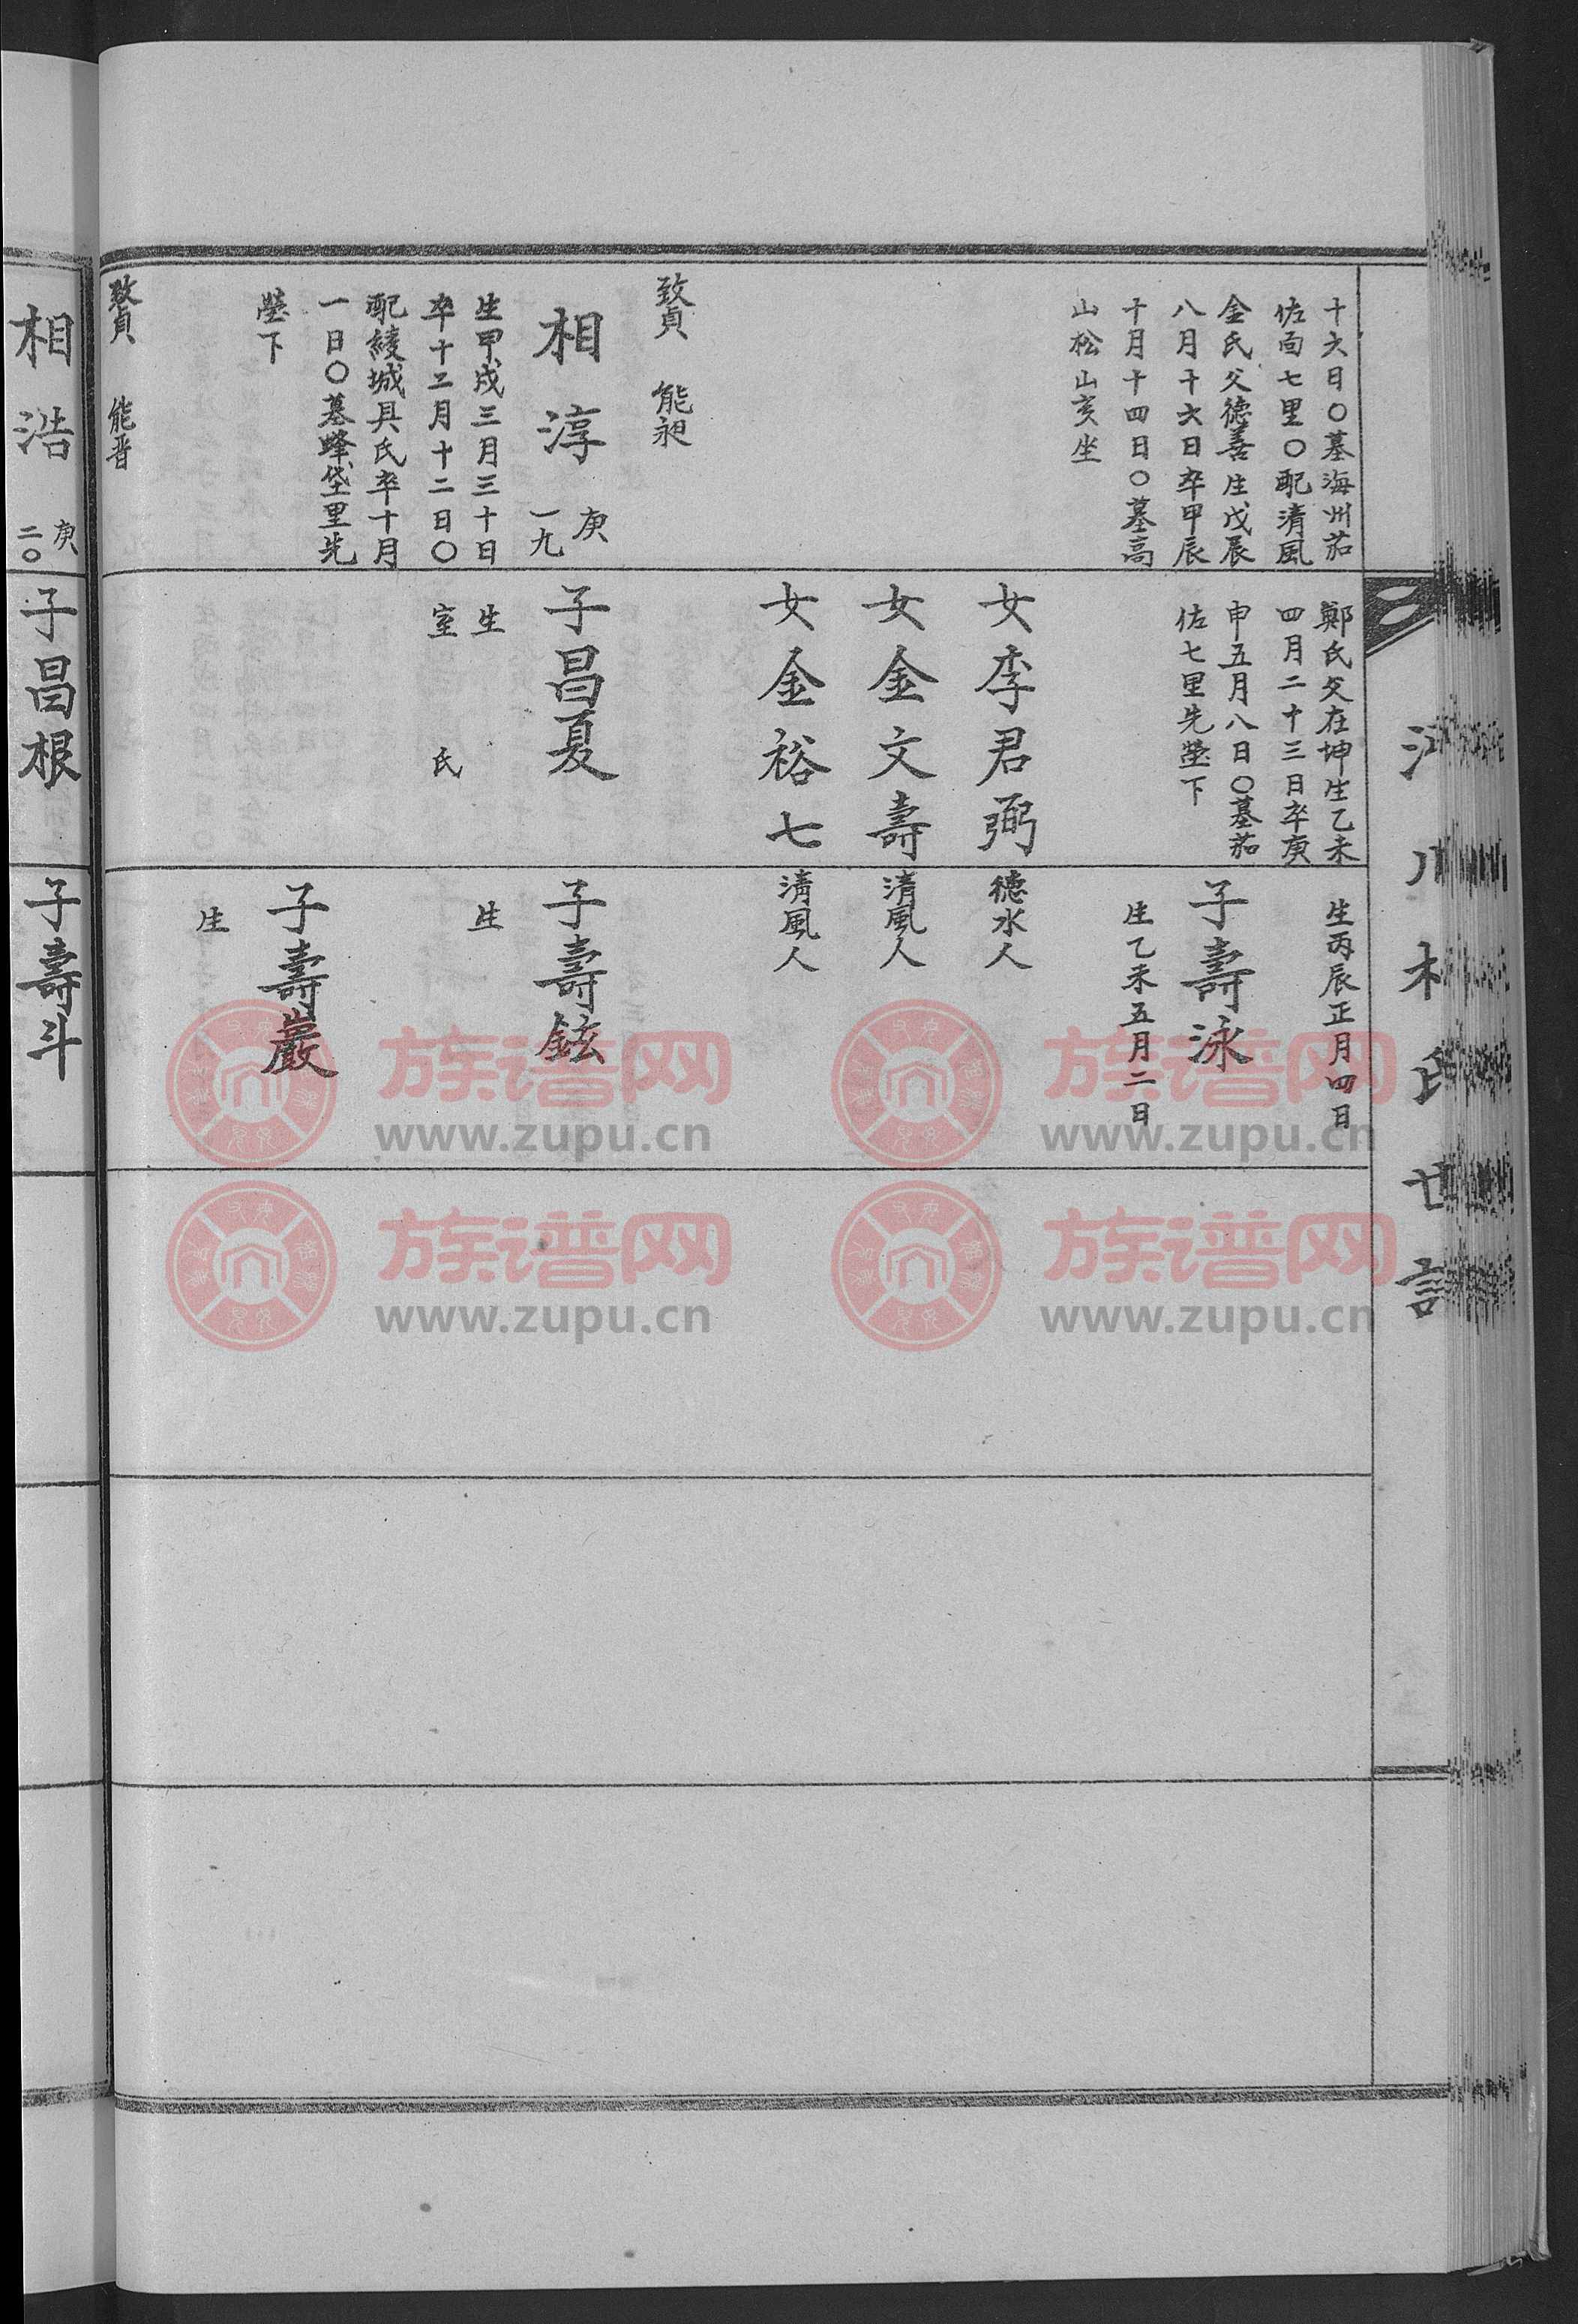 十六日〇墓海州茄
佐面七里〇配清風
金氏父德善生戊辰
八月十六日卒甲辰
十月十四日〇墓高
山松山亥坐
致貞 能昶
相淳 庚一九
生甲戌三月三十日
卒十二月十二日〇
配綾城具氏卒十月
一日〇墓峰垈里先
塋下
致貞 能晋
鄭氏父在坤生乙未
四月二十三日卒庚
申五月八日〇墓茄
佐七里先塋下
女李君弼
女金文壽
女金裕七
子昌夏
生
室 氏
生丙辰正月四日
子壽泳
生乙未五月二日
德水人
清風人
清風人
子壽鉉
生
子壽巖
生
相浩 庚二〇
子昌根
子壽斗
族谱网
www.zupu.cn
族谱网
www.zupu.cn
族谱网
www.zupu.cn
族谱网
www.zupu.cn